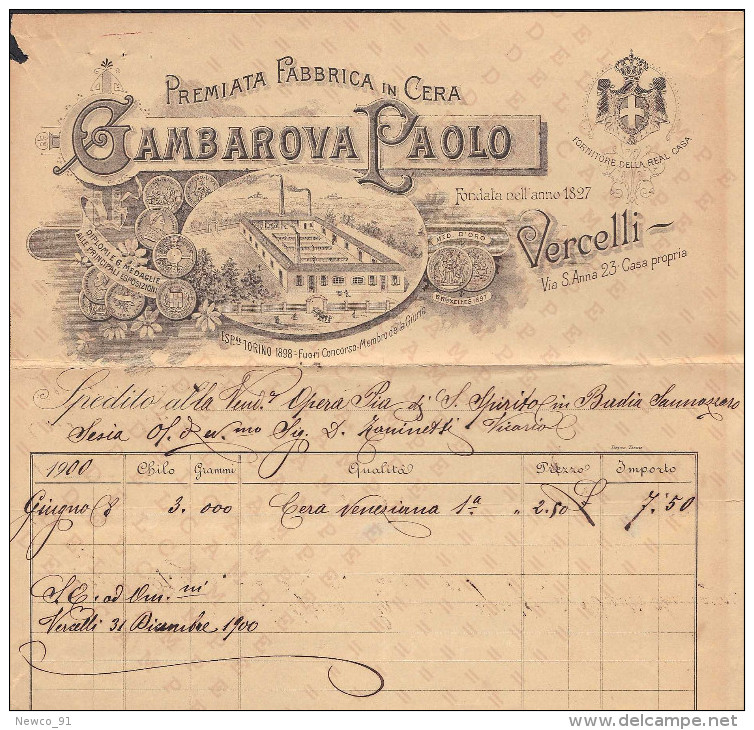 PREMIATA FABBRICA IN CERA
GAMBAROVA PAOLO
FORNITORE DELLA REAL CASA
Fondata nell'anno 1827
Vercelli
Via S. Anna 23 - Casa propria
DIPLOMI E 6 MEDAGLIE
ALLE PRINCIPALI ESPOSIZIONI
MED. D'ORO
BRUXELLES 1897
ESP. TORINO 1898 - Fuori Concorso - Membro della Giuria
Spedito alla Vend.a Opera Pia di S. Spirito in Badia Sannazzaro
Sesia Sig. D. Zaninetti Vicario
1900 Chilo Grammi Qualità Prezzo Importo
Giugno 3. 000 Cera Veneziana 1a " 2.50 £ 7.50
S. E. ad Om.ni
Vercelli 31 Dicembre 1900
Newco_91
delcampe.net